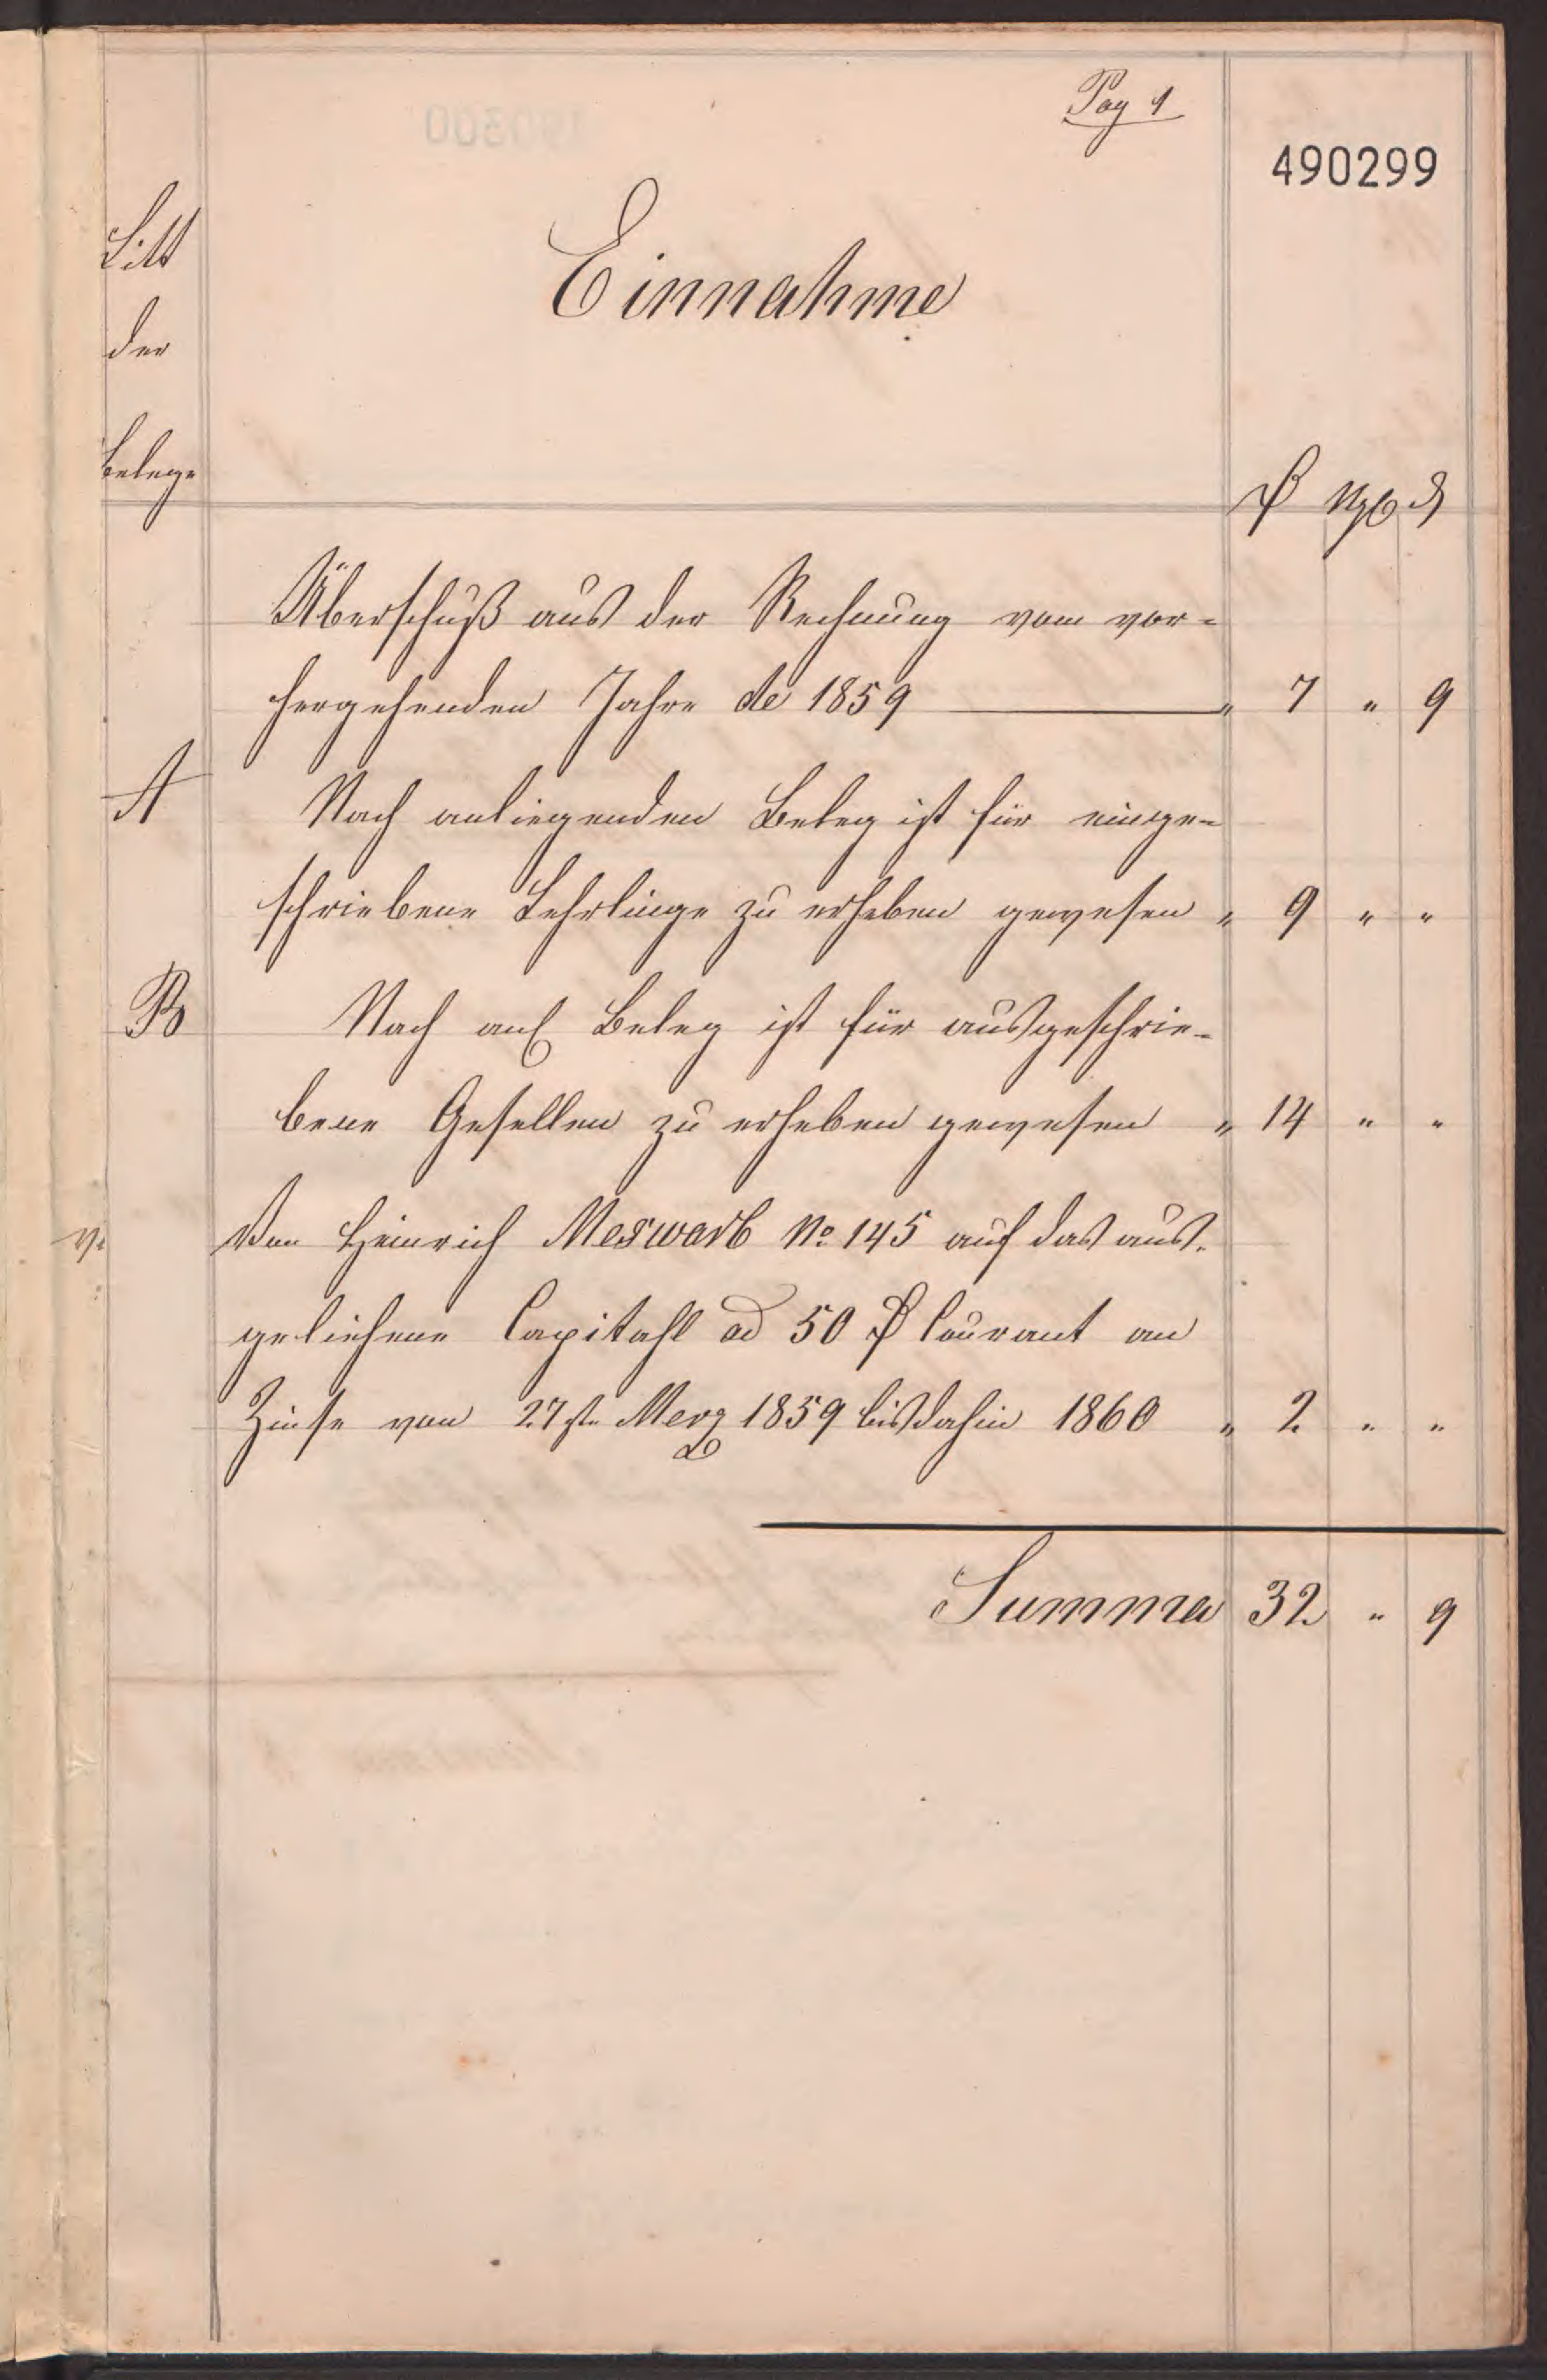 Pag 1
490299
Litt
der
Belege
Einnahme
₰
Überschuß aus der Rechnung vom vor=
hergehenden Jahre de 1859 " 7 " 9
A Nach anliegenden Beleg ist für einge=
schriebene Lehrlinge zu erheben gewesen " 9 " "
B Nach anl Beleg ist für ausgeschrie=
bene Gesellen zu erheben gewesen " 14 " "
Von Heinrich No 145 auf das aus=
geliehene Capitahl ad 50 Courant an
Zinse von 27ste Merz 1859 bis dahin 1860 " 2 " "
Summa 32 " 9